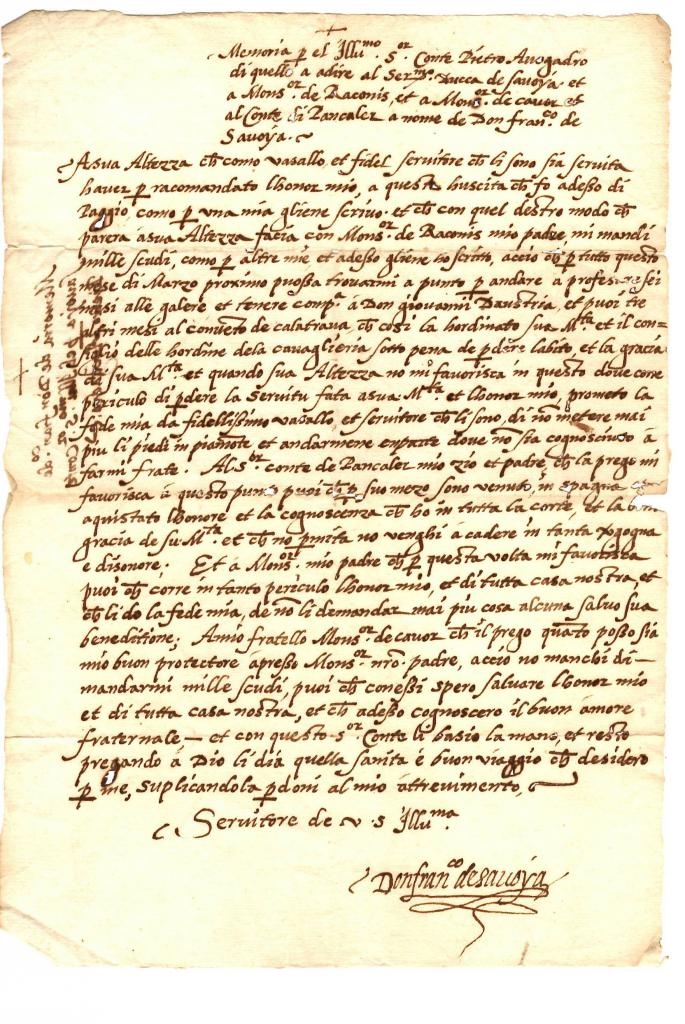 Memoria p el Illu.mo S.or Conte Pietro Avogadro
di quello à adire al Ser.mo Ducca de savoya et
a Mons.or de Raconis, et a Mons.or de cavor et
al Conte di Pancaler a nome de Don fran.co de
Savoya.
A sua Altezza ch como vasallo, et fidel servitore ch li sono sia servita
haver p racomandato lhonor mio, a questa huscita ch fo adesso di
Paggio, como p una mia gliene scrivo. et ch con quel destro modo ch
parera à sua Altezza facia con Mons.or de Raconis mio padre, mi mandi
mille scudi, como p altre mie et adesso gliene ho scritto, acciò ch p tutto questo
mese di Marzo proximo puossa trovarmi a punto p andare a profesare sei
mesi alle galere et tenere comp.a à Don giovanni Daustria, et puoi tre
altri mesi al convēto de calatrava, ch cosi la hordinato sua M.ta et il con-
siglio delle hordine dela cavaglieria sotto pena de pdere labito, et la gracia
di sua M.ta et quando sua Altezza no mi favorisca in questo dove corre
periculo di pdere la Servitu fata a sua M.ta et lhonor mio, prometo la
fede mia da fidellissimo vasallo, et servitore ch li sono, di nō metere mai
piu li piedi in piamōte et andarmene enparte dove no sia cognosciuto à
farmi frate. Al S.or conte de Pancaler mio zio et padre, ch la prego mi
favorisca à questo punto puoi ch p suo mezo sono venuto in spagna et
aquistato lhonore et la cognoscenza ch ho in tutta la corte, et la bona
gracia de su M.ta et ch no pmita no venghi à cadere in tanta vgogna
e disonore; Et à Mons.or mio padre ch p questa volta mi favorisca
puoi ch corre in tanto periculo lhonor mio, et di tutta casa nostra, et
ch li do la fede mia, de nō li demandar mai piu cosa alcuna salvo sua
beneditione; A mio fratello Mons.or de cavor ch il prego quāto posso sia
mio buon protectore apresso Mons.or nro. padre, acciò no manchi di
mandarmi mille scudi, puoi ch conessi spero salvare lhonor mio
et di tutta casa nostra, et ch adesso cognoscero il buon amore
fraternale — et con questo S.or Conte li basio la mano, et resto
pregando à Dio li dia quella sanita è buon viaggio ch desidero
p me, suplicandola pdoni al mio attrevimento,
Servitore de v. s Illu.ma
Don fran.co de savoya
Memoria de Don fran.co de